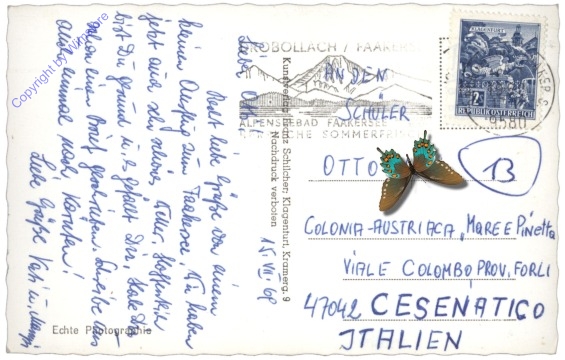 Copyright by
DROBOLLACH / FAAKERS
ALPENSEEBAD FAAKERSEE
SOMMERFRI
9580
KLAGENFURT
2S
REPUBLIK ÖSTERREICH
AN DEN
SCHÜLER
OTTO
13
COLONIA-AUSTRIACA „MARE E PINETA
VIALE COLOMBO PROV. FORLI
47042 CESENATICO
ITALIEN
Kunstverlag Franz Schilcher, Klagenfurt, Kramerg. 9
Nachdruck verboten
Echte Photographie
15. VII. 69
Recht liebe Grüße von einem
kleinen Ausflug zum Faakersee. Wir haben
jetzt auch sehr schönes Wetter. Hoffentlich
bist Du gesund u. es gefällt Dir. Habe Dir
schon einen Brief geschrieben. Schreibe uns
auch einmal nach Kärnten!
Liebe Grüße Vati u. Mami